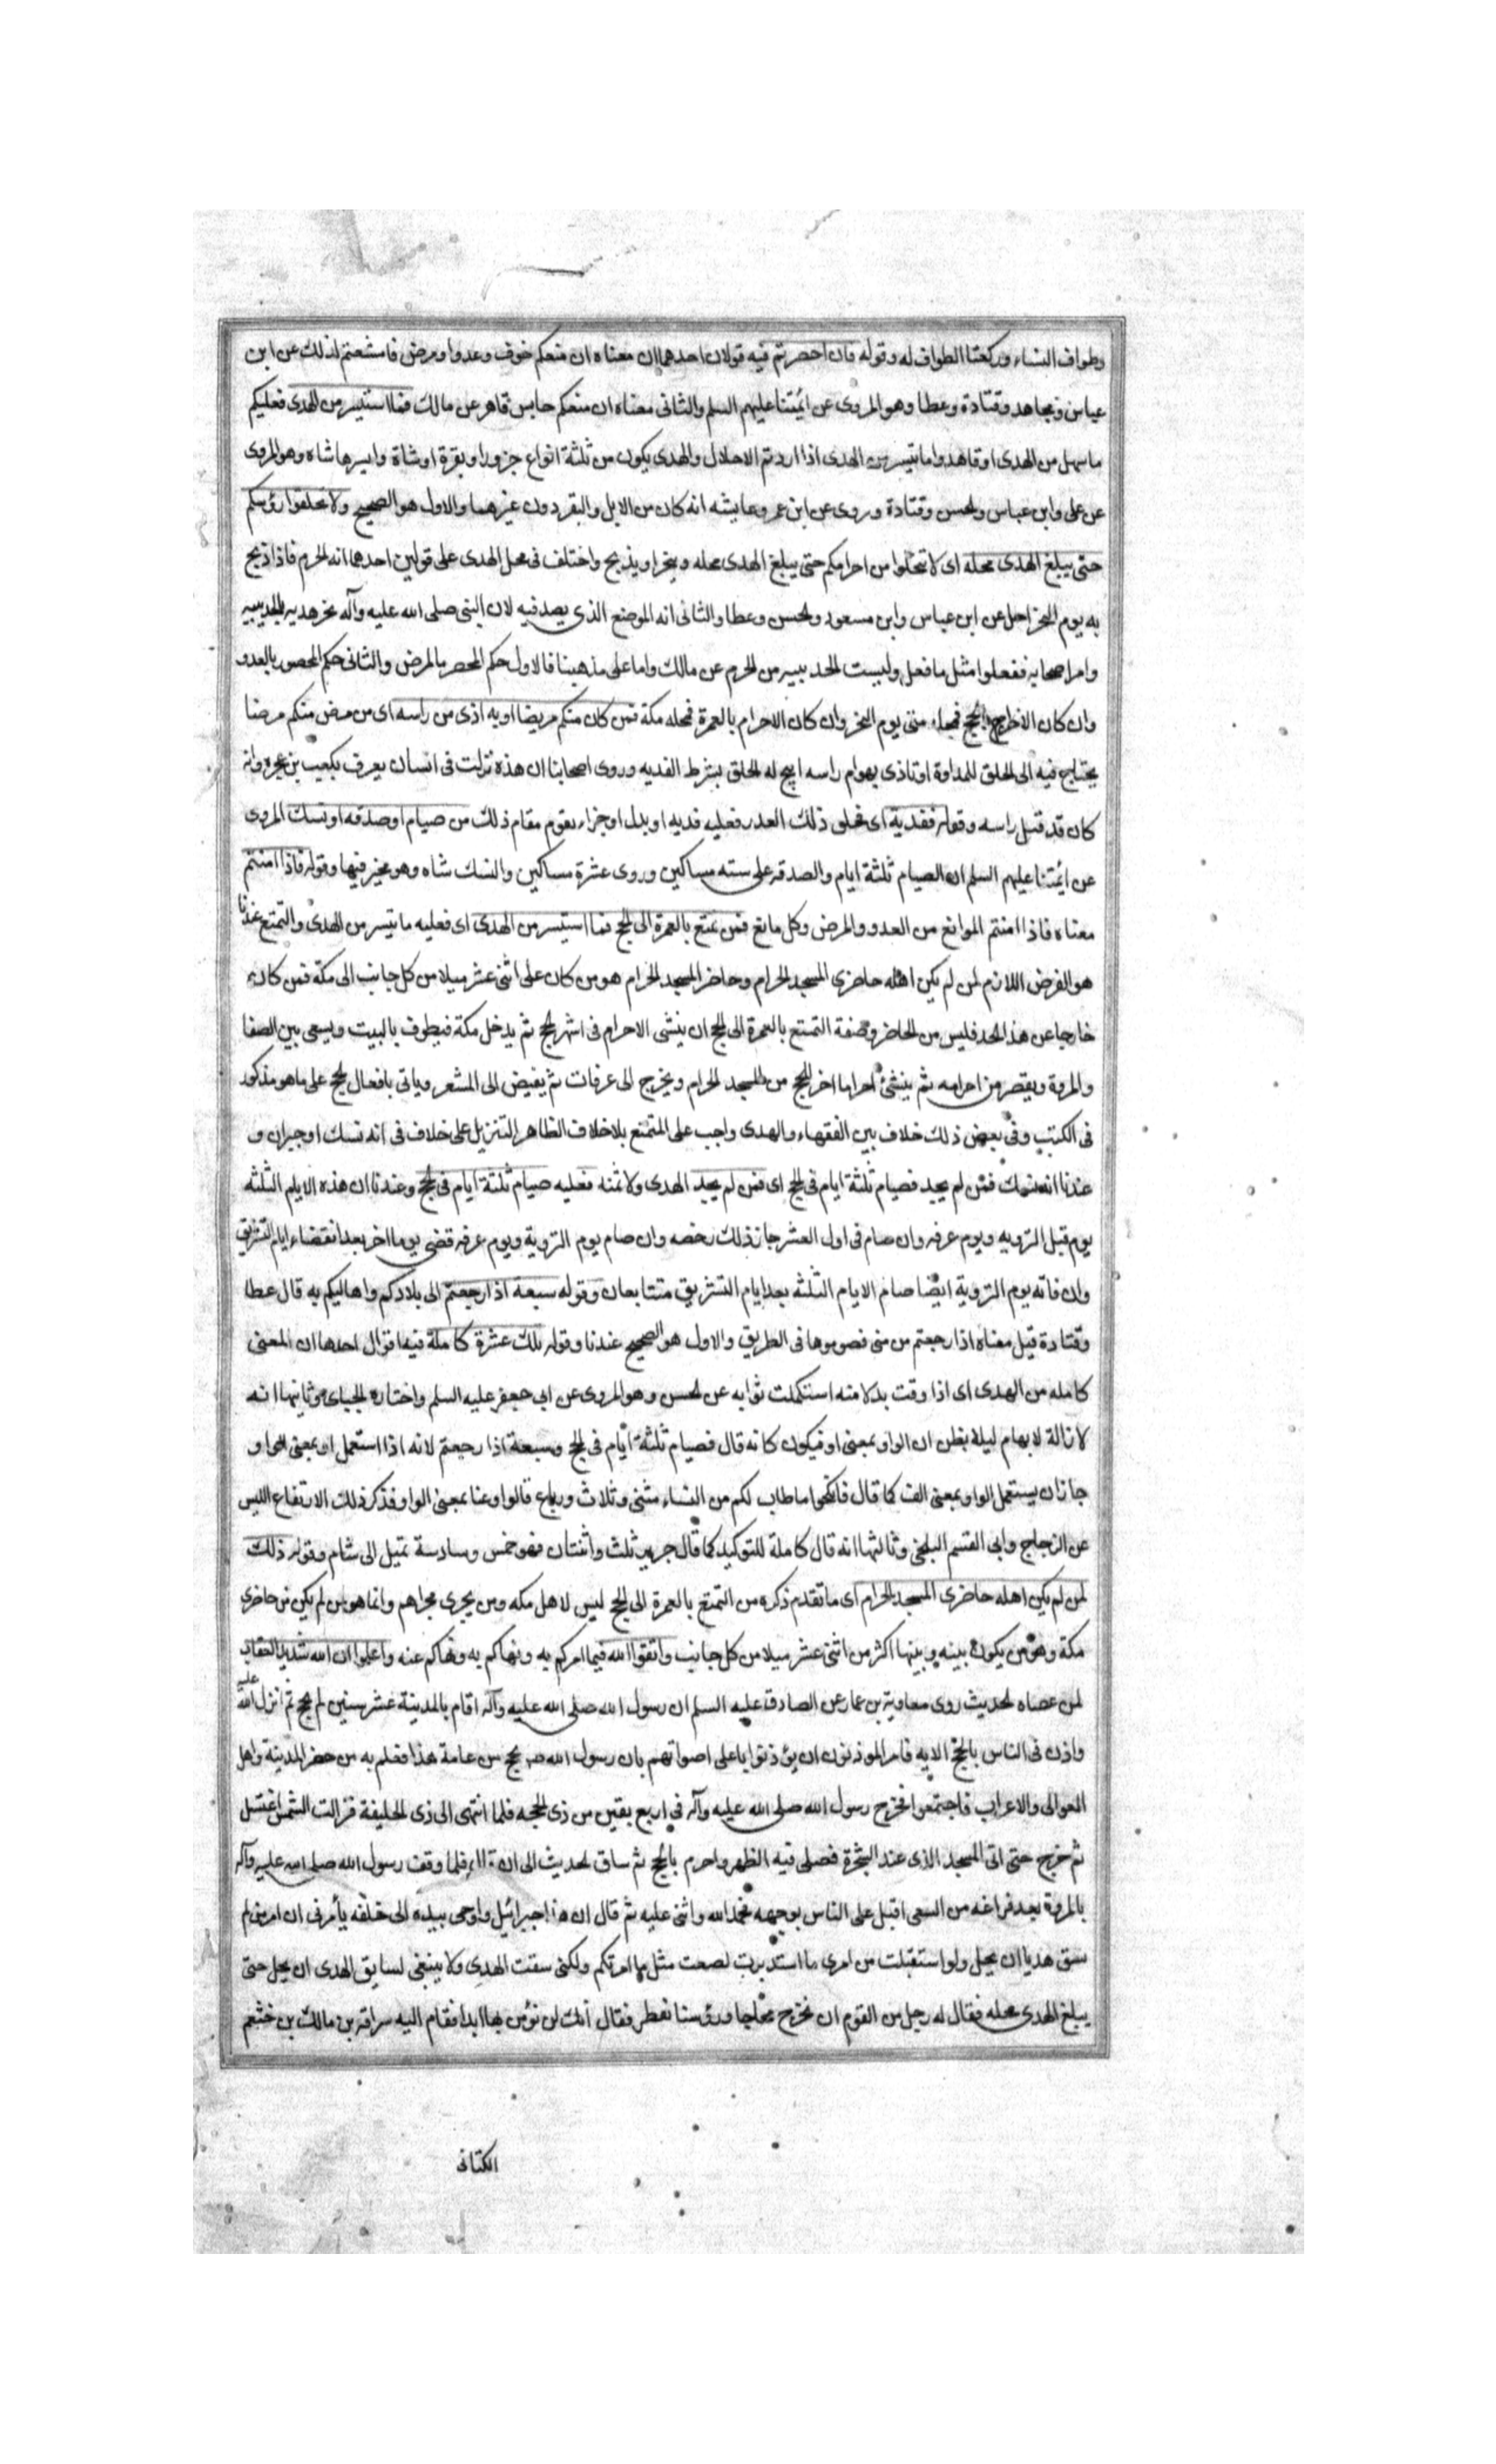 وطواف النساء وركعتا الطواف له وقوله فان احصرتم فيه قولان احدهما ان معناه ان منعكم خوف وعدو او مرض فامتنعتم لذلك عن ابن
عباس ومجاهد وقتادة وعطا وهو المروى عن ائمتنا عليهم السلم والثانى معناه ان منعكم حابس قاهر عن مالك فما استيسر من الهدى فعليكم
ما سهل من الهدى او فاهدوا ما تيسر من الهدى اذا اردتم الاحلال والهدى يكون من ثلثة انواع جزور او بقرة او شاة وايسرها شاه وهو المروى
عن على وابن عباس والحسن وقتادة وروى عن ابن عمر وعايشه انه كان من الابل والبقر دون غيرهما والاول هو الصحيح ولا تحلقوا رؤسكم
حتى يبلغ الهدى محله اى لا تتحلوا من احرامكم حتى يبلغ الهدى محله وينحر او يذبح واختلف فى محل الهدى على قولين احدهما انه الحرم فاذا ذبح
به يوم النحر احل عن ابن عباس وابن مسعود والحسن وعطا والثانى انه الموضع الذى يصد فيه لان النبى صلى الله عليه وآله نحر هديه بالحديبيه
وامر اصحابه ففعلوا مثل ما فعل وليست الحديبيه من الحرم عن مالك واما على مذهبنا فالاول حكم المحصر بالمرض والثانى حكم المحصور بالعدو
وان كان الاحرام بالحج فمحله منى يوم النحر وان كان الاحرام بالعمرة فمحله مكة فمن كان منكم مريضا او به اذى من راسه اى من مرض منكم مرضا
يحتاج فيه الى الحلق للمداوة او تاذى بهوام راسه ابيح له الحلق بشرط الفديه وروى اصحابنا ان هذه نزلت فى انسان يعرف بكعب بن عجره وانه
كان قد قمل راسه وقوله ففدية اى فحلق ذلك العذر فعليه فديه او بدل او جزاء يقوم مقام ذلك من صيام او صدقه او نسك المروى
عن ائمتنا عليهم السلم ان الصيام ثلثة ايام والصدقه على سته مساكين وروى عشرة مساكين والنسك شاه وهو مخير فيها وقوله فاذا امنتم
معناه فاذا امنتم الموانع من العدو والمرض وكل مانع فمن تمتع بالعمرة الى الحج فما استيسر من الهدى اى فعليه ما تيسر من الهدى والتمتع عندنا
هو الفرض اللازم لمن لم يكن اهله حاضرى المسجد الحرام وحاضر المسجد الحرام هو من كان على اثنى عشر ميلا من كل جانب الى مكة فمن كان
خارجا عن هذا الحد فليس من الحاضر وصفة التمتع بالعمرة الى الحج ان ينشى الاحرام فى اشهر الحج ثم يدخل مكة فيطوف بالبيت ويسعى بين الصفا
والمروة ويقصر من احرامه ثم ينشئ احراما اخر للحج من المسجد الحرام ويخرج الى عرفات ثم يفيض الى المشعر وياتى بافعال الحج على ما هو مذكور
فى الكتب وفى بعض ذلك خلاف بين الفقهاء والهدى واجب على المتمتع بلا خلاف لظاهر التنزيل على خلاف فى انه نسك او جبران و
عندنا انه نسك فمن لم يجد فصيام ثلثة ايام فى الحج اى فمن لم يجد الهدى ولا ثمنه فعليه صيام ثلثة ايام فى الحج وعندنا ان هذه الايام الثلثه
يوم قبل الترويه ويوم عرفه وان صام فى اول العشر جاز ذلك رخصه وان صام يوم التروية ويوم عرفه قضى يوما اخر بعد انقضاء ايام التشريق
وان فاته يوم التروية ايضا صام الايام الثلثه بعد ايام التشريق متتابعات وقوله سبعة اذا رجعتم الى بلادكم واهاليكم به قال عطا
وقتادة قيل معناه اذا رجعتم من منى فصوموها فى الطريق والاول هو الصحيح عندنا وقوله تلك عشرة كاملة فيها اقوال احدها ان المعنى
كامله من الهدى اى اذا وقت بدلا منه استكملت ثوابه عن الحسن وهو المروى عن ابى جعفر عليه السلم واختاره الجباى وثانيها انه
لازالة لابهام ليلا يظن ان الواو بمعنى او فيكون كانه قال فصيام ثلثة ايام فى الحج وسبعة اذا رجعتم لانه اذا استعمل او بمعنى الواو
جاز ان يستعمل الواو بمعنى الف كما قال فانكحوا ما طاب لكم من النساء مثنى وثلاث ورباع فالواو هنا بمعنى الواو فذكر ذلك الارتفاع اللبس
عن الزجاج وابى القسم البلخى وثالثها انه قال كاملة للتوكيد كما قال جرير ثلث واثنتان فهو خمس وسادسة تميل الى شام وقوله ذلك
لمن لم يكن اهله حاضرى المسجد الحرام اى ما تقدم ذكره من التمتع بالعمرة الى الحج ليس لاهل مكه ومن يجرى مجراهم وانما هو من لم يكن من حاضرى
مكة وهو من يكون بينه وبينها اكثر من اثنى عشر ميلا من كل جانب واتقوا الله فيما امركم به ونهاكم به ونهاكم عنه واعلموا ان الله شديد العقاب
لمن عصاه الحديث روى معاوية بن عمار عن الصادق عليه السلم ان رسول الله صلى الله عليه وآله اقام بالمدينة عشر سنين لم يحج ثم انزل الله عليه
واذن فى الناس بالحج الايه فامر الموذنون ان يؤذنوا باعلى اصواتهم بان رسول الله ص يحج من عامة هذا فعلم به من حضر المدينة واهل
العوالى والاعراب فاجتمعوا فخرج رسول الله صلى الله عليه وآله فى اربع بقين من ذى الحجه فلما انتهى الى ذى الحليفة فزالت الشمس اغتسل
ثم خرج حتى اتى المسجد الذى عند الشجرة فصلى فيه الظهر واحرم بالحج ثم ساق الحديث الى ان قال فلما وقف رسول الله صلى الله عليه وآله
بالمروة بعد فراغه من السعى اقبل على الناس بوجهه فحمد الله واثنى عليه ثم قال ان هذا جبرائيل واومى بيده الى خلفه يأمرنى ان امر من لم
سق هديا ان يحل ولو استقبلت من امرى ما استدبرت لصنعت مثل ما امرتكم ولكنى سقت الهدى ولا ينبغى لسايق الهدى ان يحل حتى
يبلغ الهدى محله فقال له رجل من القوم ان نخرج حجاجا ورؤسنا تقطر فقال انك لن تؤمن بها ابدا فقام اليه سراقه بن مالك بن خثعم
الكنانى